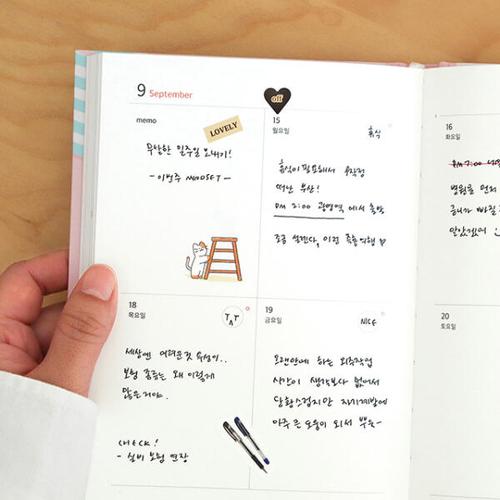 9 September
memo
LOVELY
무탈한 일주일 보내기!
- 이번주 MINDSET -
off
15
월요일
휴식
휴식이 필요해서 무작정
떠난 부산!
PM 2:00 광명역 에서 출발
조금 설렌다, 이런 즉흥여행
16
화요일
병원을 먼저
18
목요일
TAT
세상에 어려운것 투성이..
보험 종류는 왜 이렇게
많은거야.
CHECK!
- 실비 보험 연장
19
금요일
NICE
오랜만에 하는 외주작업
시간이 생각보다 없어서
당황스럽지만 자기계발에
아주 큰 도움이 되서 뿌듯~
20
토요일